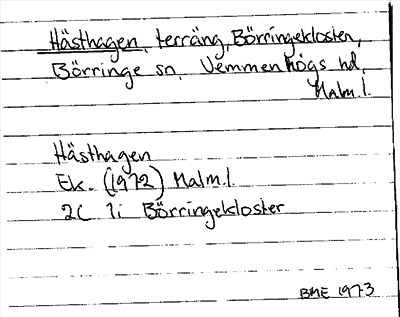 Hästhagen, terräng, Börringekloster,
Börringe sn, Vemmenhögs hd,
Malm.l.
Hästhagen
Ek. (1972) Malm.l.
2C 1i Börringekloster
BME 1973